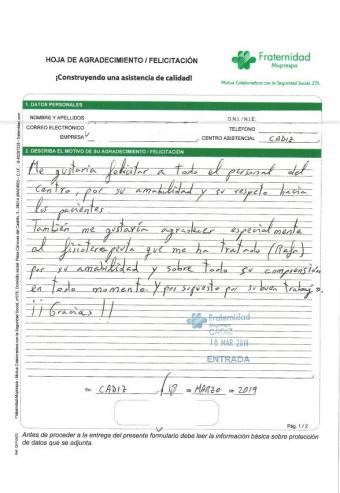 HOJA DE AGRADECIMIENTO / FELICITACIÓN
Fraternidad
Muprespa
¡Construyendo una asistencia de calidad!
Mutua Colaboradora con la Seguridad Social, 275
1. DATOS PERSONALES
NOMBRE Y APELLIDOS
D.N.I. / N.I.E.
CORREO ELECTRÓNICO
TELÉFONO
EMPRESA
CENTRO ASISTENCIAL CADIZ
2. DESCRIBA EL MOTIVO DE SU AGRADECIMIENTO / FELICITACIÓN
Me gustaria felicitar a todo el personal del
Centro, por su amabilidad y su respeto hacia
los pacientes
Tambien me gustaría agradecer especialmente
al fisioterapeuta que me ha tratado (Rafa)
por su amabilidad y sobre todo su comprensión
en todo momento. Y por supuesto por su buen trabajo.
¡¡Gracias!!
Fraternidad
Muprespa
CADIZ
18 MAR 2019
ENTRADA
En CADIZ, 18 de MARZO de 2019
Pág. 1 / 2
Antes de proceder a la entrega del presente formulario debe leer la información básica sobre protección
de datos que se adjunta.